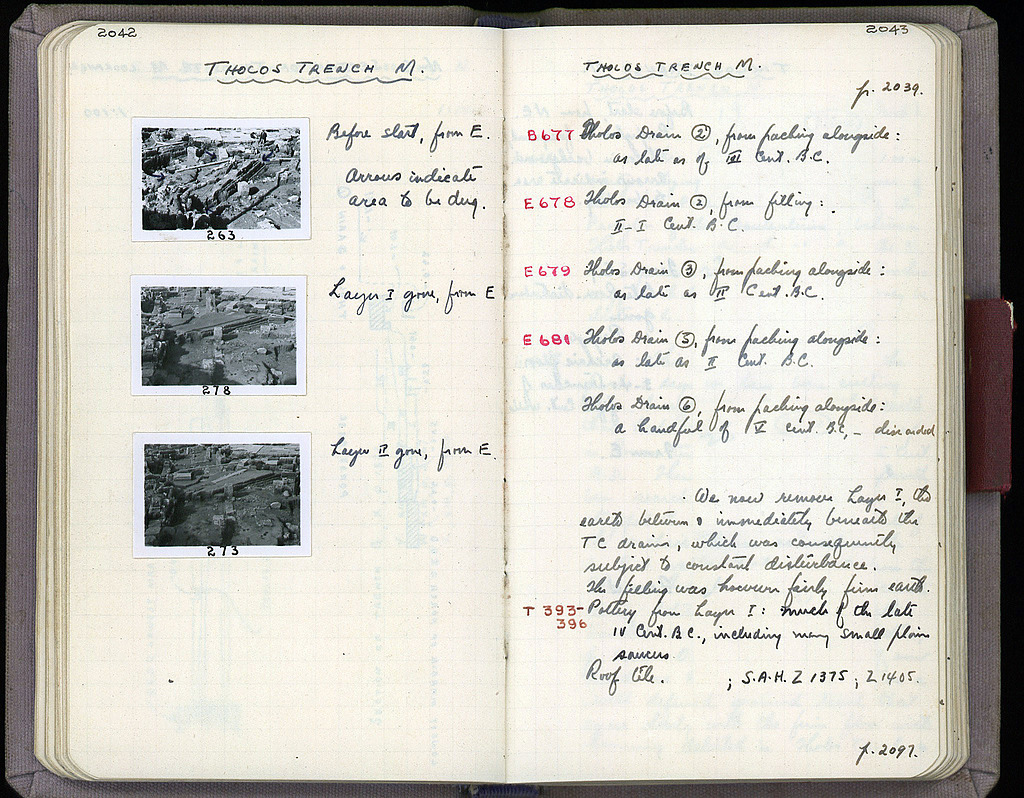 2042
THOLOS TRENCH M.
Before start, from E.
Arrows indicate
area to be dug.
263
Layer I gone, from E
278
Layer II gone, from E.
273
2043
THOLOS TRENCH M.
p. 2039.
B677 Tholos Drain ②, from packing alongside:
as late as of III Cent. B.C.
E678 Tholos Drain ②, from filling:
II-I Cent. B.C.
E679 Tholos Drain ③, from packing alongside:
as late as II Cent. B.C.
E681 Tholos Drain ⑤, from packing alongside:
as late as II Cent. B.C.
Tholos Drain ⑥, from packing alongside:
a handful of V Cent. B.C, – discarded
We now remove Layer I, the
earth between & immediately beneath the
TC drains, which was consequently
subject to constant disturbance.
The filling was however fairly firm earth.
T 393- Pottery from Layer I: much of the late
396 IV Cent. B.C., including many small plain
saucers
Roof tile. ; S.A.H. Z 1375 ; Z 1405.
p. 2097.